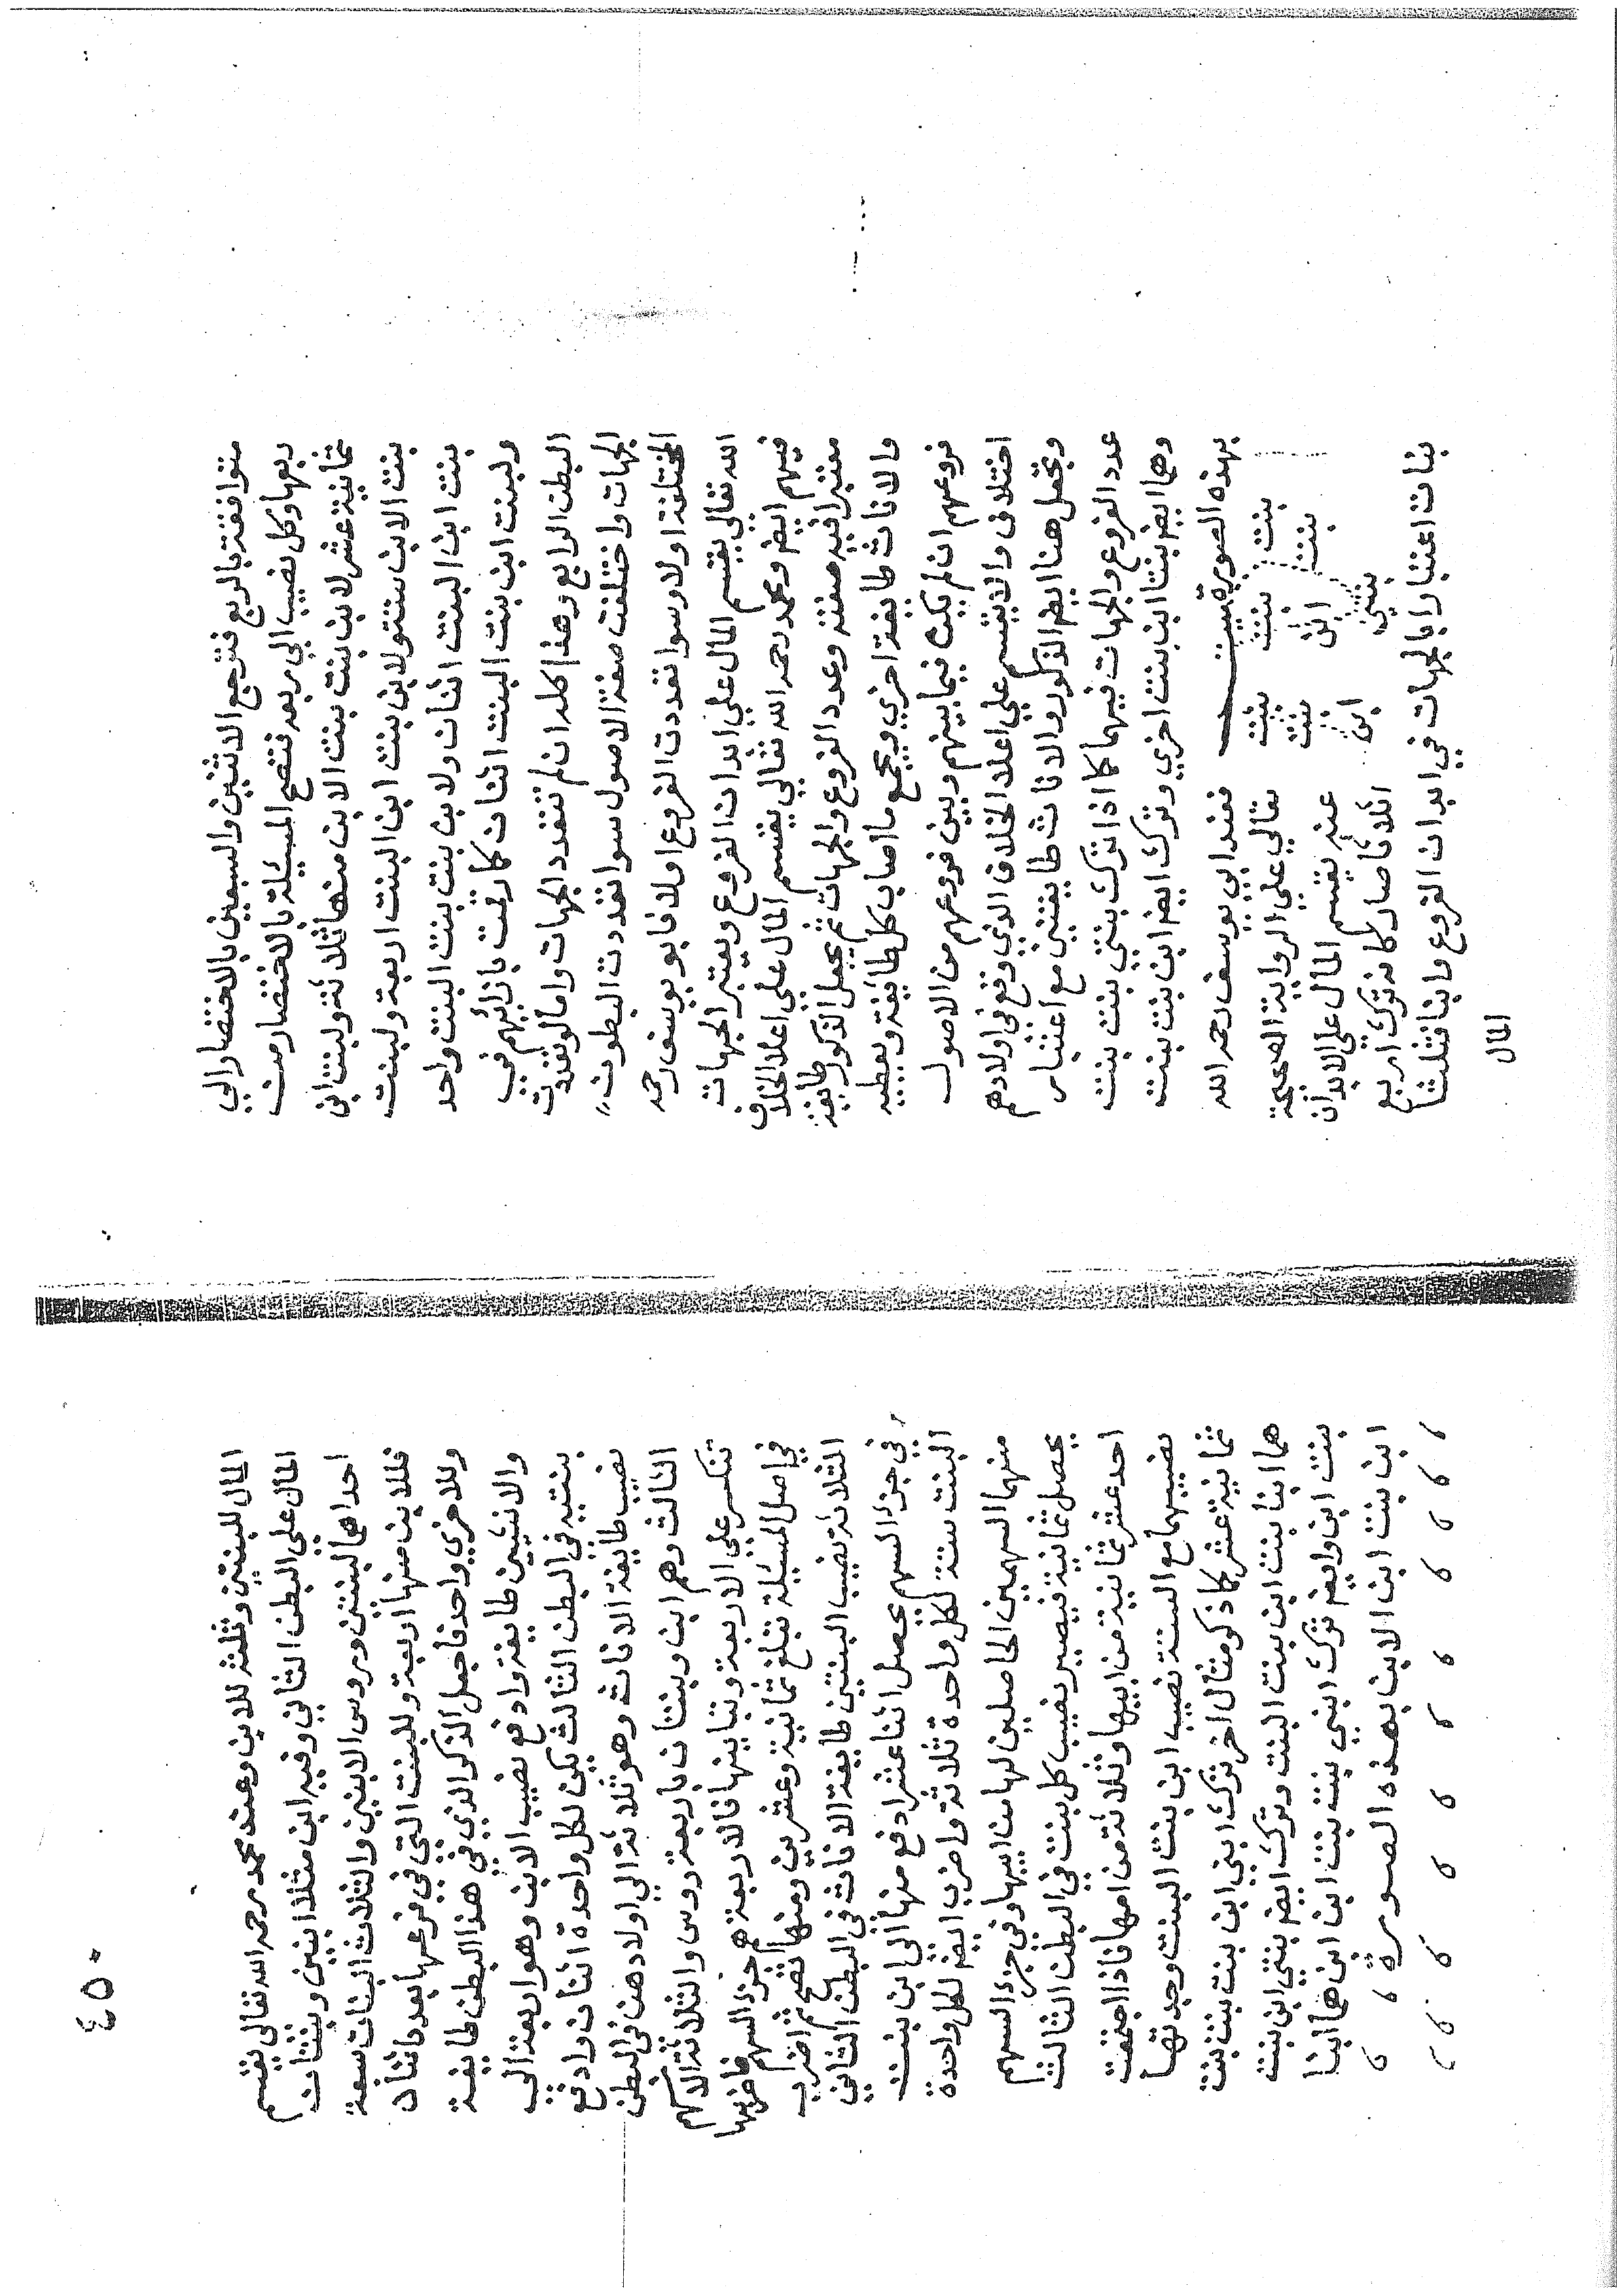 متوافقة بالربع فترجع الاثنين والسبعين بالاختصار الي
ربعها وكل نصيب الي ربعه فتصح المسيلة بالاختصار من
ثمانية عشر لابن بنت بنت الابن منها ثلاثة ولبنت ابن
بنت الابن ستة ولابن بنت ابن البنت اربعة ولبنت
بنت ابن البنت اثنان ولابن بنت بنت البنت واحد
ولبنت ابن بنت البنت اثنان كما رقمت بازائهم في
البطن الرابع وهذا كله ان لم تتعدد الجهات واما لو تعددت
الجهات واختلفت صفة الاصول سوا تعددت البطون
المختلفة اولا وسوا تعددت الفروع اولا فابو يوسف رحمه
الله تعالي يقسم المال علي ابدان الفروع ويعتبر الجهات
فيهم ايضم ومحمد رحمه الله تعالي يقسم المال علي اعلا الخلاف
معتبرا فيه صفته وعدد الفروع والجهات ثم يجعل الذكور طايفة
والاناث طايفة اخري ويجمع ما اصاب كل طايفة ويعطيه
فروعهم ان لم يكن فيما بينهم وبين فروعهم من الاصول
اختلاف والا يقسم علي اعلا الخلاف الذي وقع في اولادهم
ويجعل هنا ايضم الذكور والاناث طايفتين مع اعتبار
عدد الفروع والجهات فيهما كما اذا ترك بنتي بنت بنت
وهما ايضم بنتا ابن بنت اخري وترك ايضم ابن بنت بنت
بهذه الصورة ميت
فعند ابي يوسف رحمه الله
تعالي علي الرواية الصحيحة
عنه يقسم المال علي الابدان
اثلاثا صار كانه ترك اربع
بنت بنت بنت
بنت ابن بنت
ابن بنتين
بنات اعتبارا بالجهات في ابدان الفروع وابنا فثلثا
المال
٤٥٠
المال للبنتين وثلثه للابن وعند محمد رحمه الله تعالي يقسم
المال علي البطن الثاني وفيه ابن مثل ابنين وبنتان
احداهما لبنتين وروس الابنين والثلاث البنات سبعة
فللابن منها اربعة وللبنت التي في فرعها بعدد اثنان
وللاخري واحد فاجعل الذكر الذي في هذا البطن طايفة
والانثيين طايفة وادفع نصيب الابن وهو اربعة الي
بنتيه في البطن الثالث يكن لكل واحدة اثنان وادفع
نصيب طايفة الاناث وهو ثلاثة الي اولادهن في البطن
الثالث وهم ابن وبنتان باربعة روس والثلاثة الاسهم
تنكسر علي الاربعة وتباينها فالاربعة هم جزء السهم فاضربها
في اصل المسيلة تبلغ ثمانية وعشرين ومنها تصح ثم اضرب
الثلاثة نصيب البنتين طايفة الاناث في البطن الثاني
في جزء السهم يحصل اثنا عشر ادفع منها الي ابن بنت
البنت ستة لكل واحدة ثلاثة واضرب ايضم لكل واحدة
منهما السهمين الحاصلين لها من ابيها وفي جزء السهم
يحصل ثمانية فيصير نصيب كل بنت في البطن الثالث
احد عشر ثمانية من ابيها وثلاثة من امها فاذا اجتمعت
نصيبهما مع الستة نصيب ابن بنت البنت وجدتها
ثمانية عشر كما ذكر مثال اخر ترك ابني ابن بنت بنت بنت
هما ابنا بنت ابن بنت البنت وترك ايضم بنتي ابن بنت
بنت ابن وايضم ترك ابني بنت بنت ابن ابن هما ابنا
ابن بنت ابن الابن بهذه الصورة